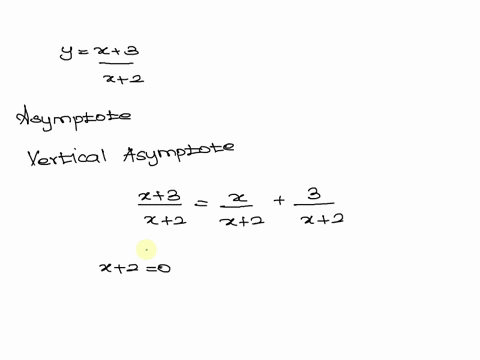 y = x+3 / x+2
Asymptote
Vertical Asymptote
x+3 / x+2 = x / x+2 + 3 / x+2
x+2 = 0